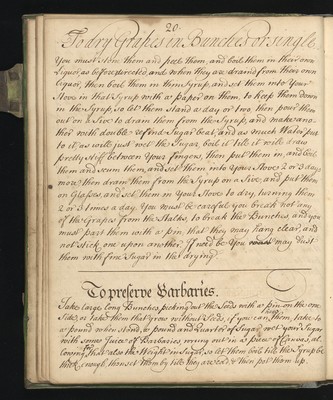 20.
To dry Grapes in Bunches or single
You must stone them and peel them, and boil them in their own
Liquor, as before directed, and when they are drained from their own
Liquor, then boil them in their Syrup, and set them into your
Stove in that Syrup with a paper on them to keep them down
in the Syrup, so let them stand a day or two, then pour them
out on a Sive to drain them from the Syrup, and make ano-
ther with double refin'd Sugar beat, and as much Water put
to it as will just wet the Sugar, boil it till it will draw
pretty stiff between Your fingers, then put them in, and boil
them and scum them, and set them into your Stove 2 or 3 days
more, then drain them from the Syrup on a Sive, and put them
on Glasses, and set them on Your Stove to dry, turning them
2 or 3 times a day. You must be careful you break not any
of the Grapes from the Stalks, to break the Bunches, and you
must part them with a pin, that they may hang clear, and
not stick one upon another. If need be You may dust
them with fine Sugar in the drying
To preserve Barbaries.
Take large long Bunches, picking out the Seeds with a pin on the one
Side, or take them that grow without Seed, if you can them, take to
a pound when ston'd, a pound and Quarter of Sugar, wet your Sugar
with some Juice of Barbaries, wrung out in a piece of Canvas, al
lowing that also the Weight in Sugar, so let them boil till the Syrup be
thick enough, then set them by till they are cold, & then pot them up.